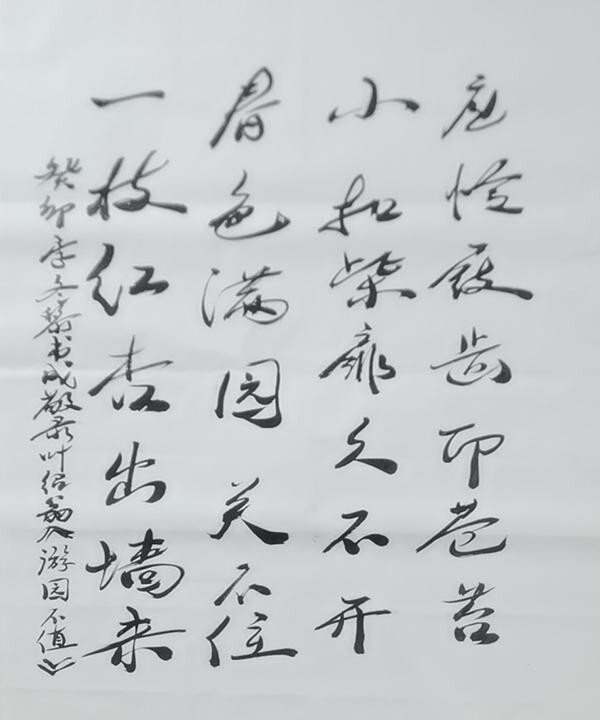 应怜屐齿印苍苔
小扣柴扉久不开
春色满园关不住
一枝红杏出墙来
癸卯季冬书成敬录叶绍翁《游园不值》